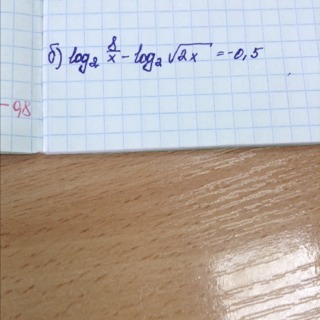 б) log₂ 8/x - log₂ √2x = -0,5
- 0,8